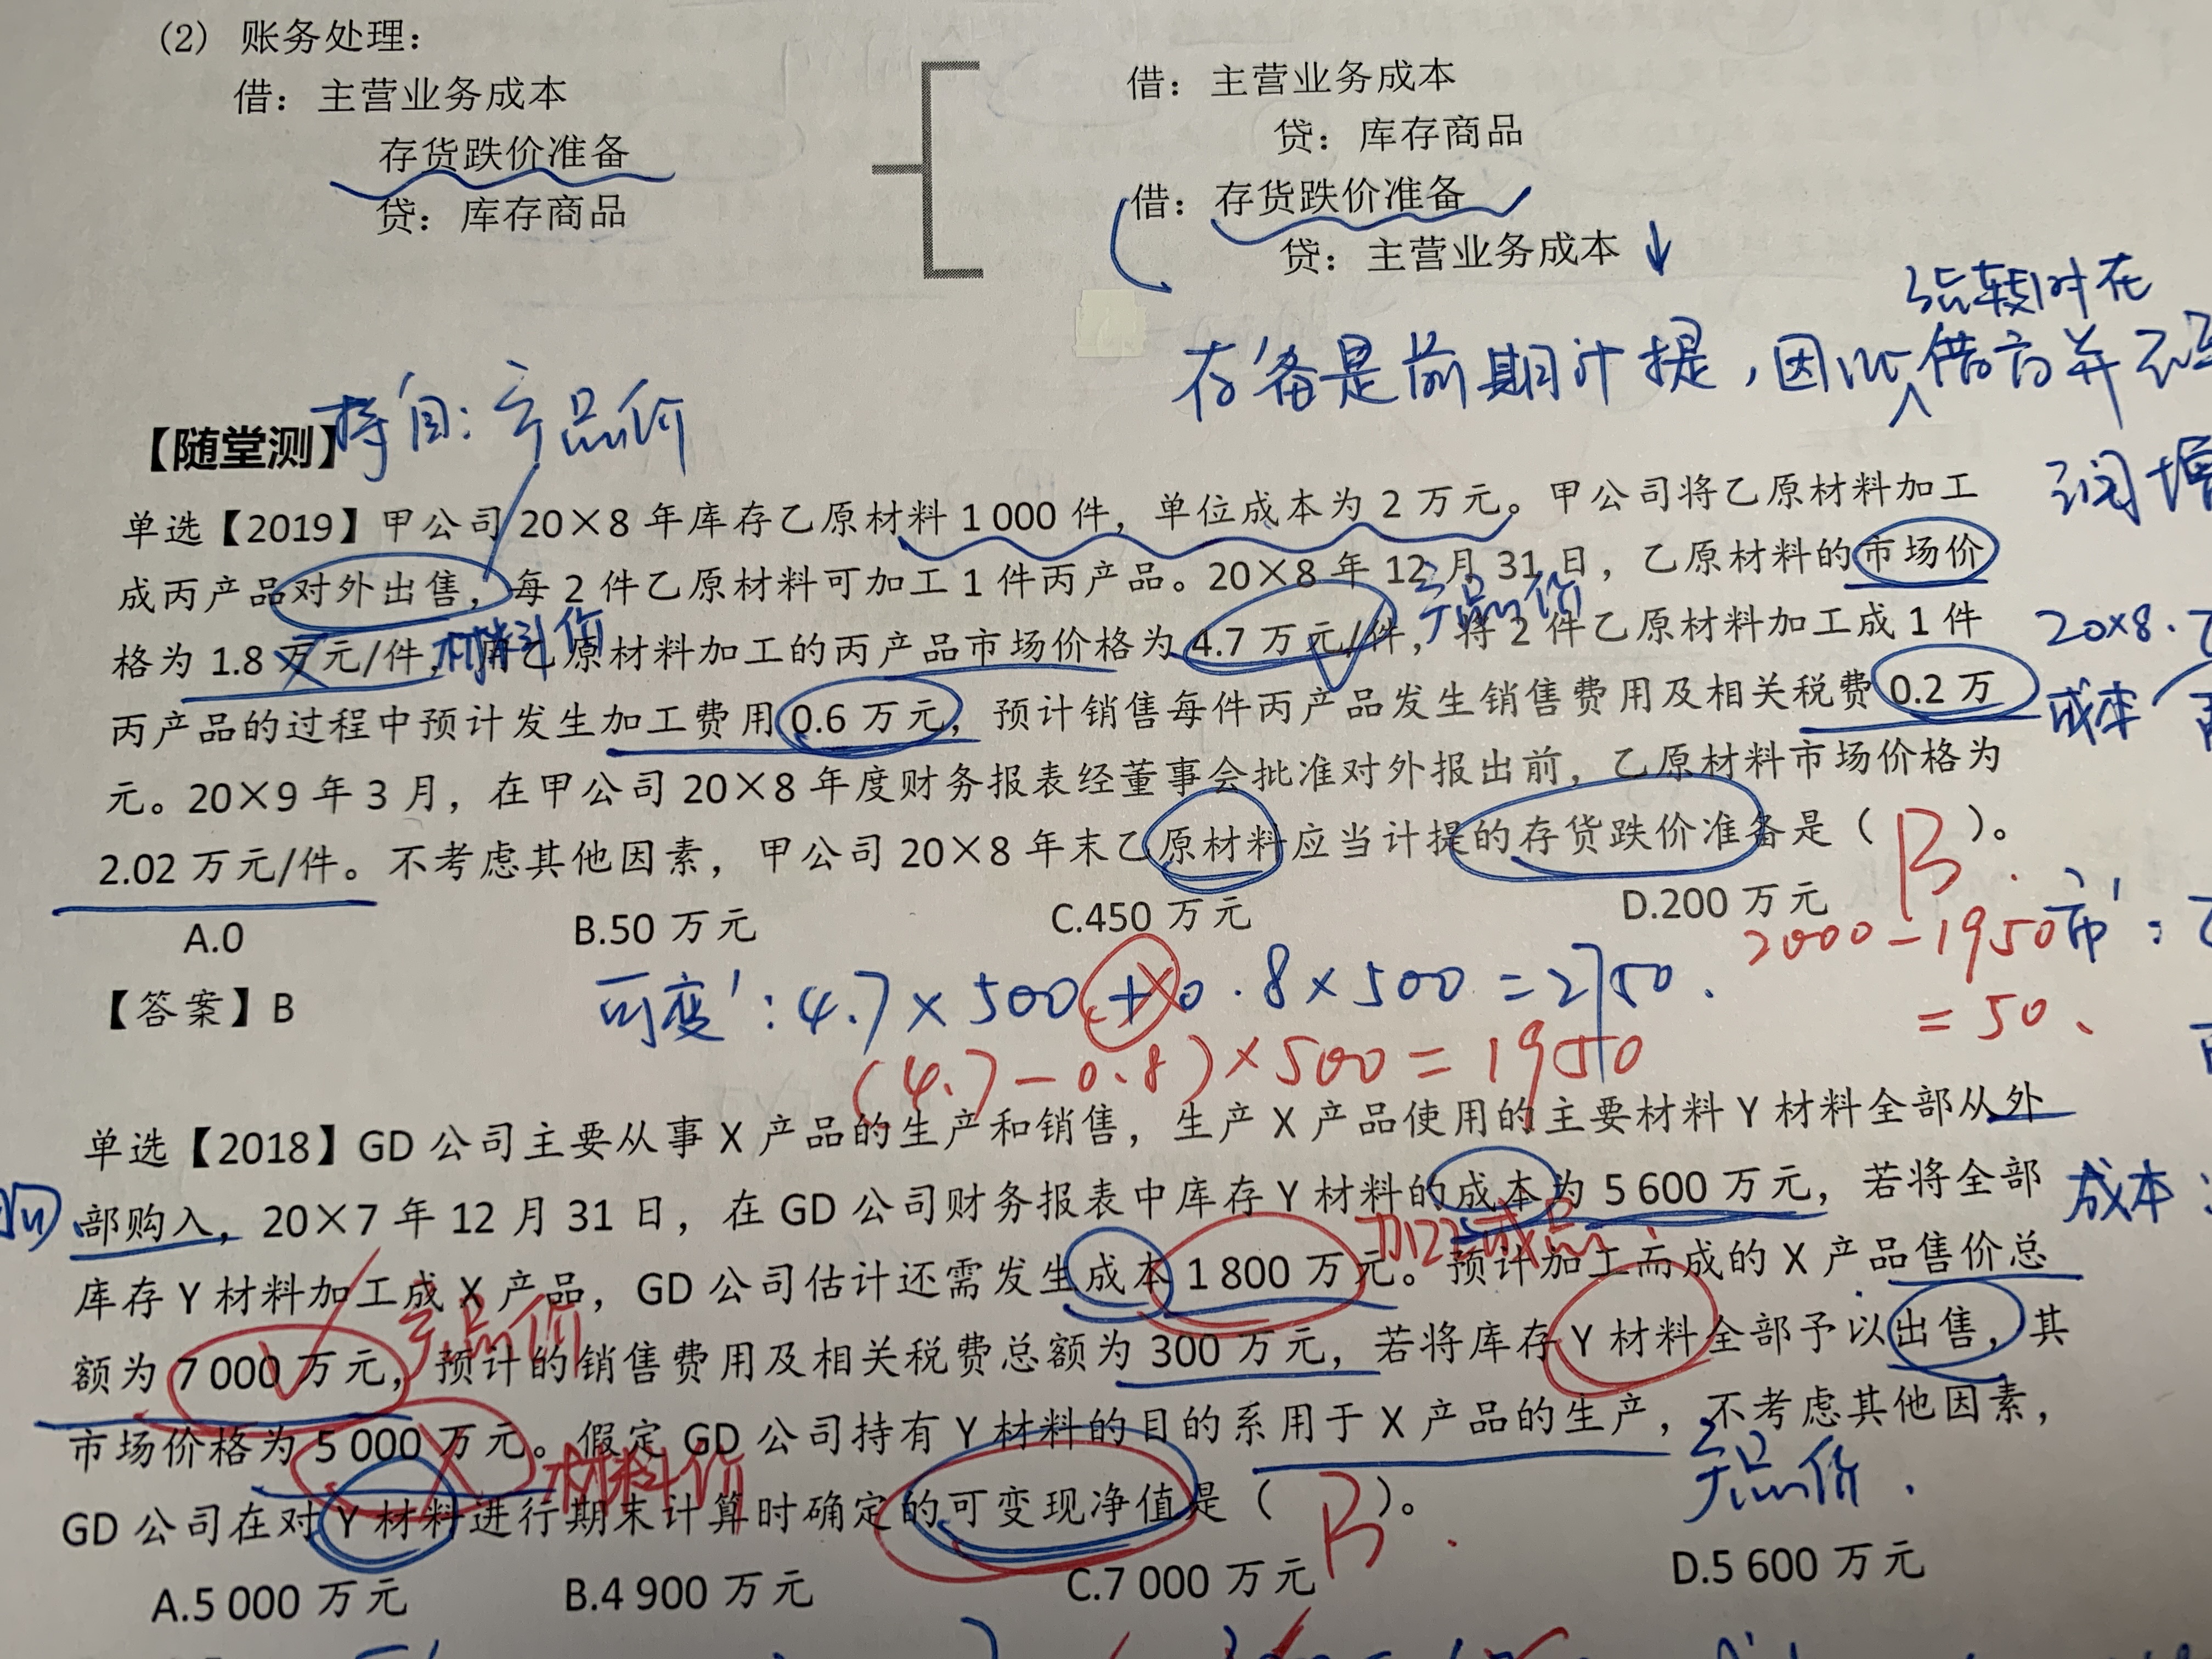 （2）账务处理：
借：主营业务成本
存货跌价准备
贷：库存商品
借：主营业务成本
贷：库存商品
借：存货跌价准备
贷：主营业务成本
结转时在
存备是前期计提，因此借高并
【随堂测】
持有：产品价
单选【2019】甲公司 20×8 年库存乙原材料 1 000 件，单位成本为 2 万元。甲公司将乙原材料加工
成丙产品对外出售，每 2 件乙原材料可加工 1 件丙产品。20×8 年 12 月 31 日，乙原材料的市场价
格为 1.8 万元/件，用乙原材料加工的丙产品市场价格为 4.7 万元/件，将 2 件乙原材料加工成 1 件
丙产品的过程中预计发生加工费用 0.6 万元，预计销售每件丙产品发生销售费用及相关税费 0.2 万
元。20×9 年 3 月，在甲公司 20×8 年度财务报表经董事会批准对外报出前，乙原材料市场价格为
2.02 万元/件。不考虑其他因素，甲公司 20×8 年末乙原材料应当计提的存货跌价准备是（ B ）。
材料价
产品价
20×8.
成本
A.0
B.50 万元
C.450 万元
D.200 万元
2000－1950
＝50
【答案】B
可变：4.7×500＋0.8×500＝2750.
（4.7－0.8）×500＝1950
单选【2018】GD 公司主要从事 X 产品的生产和销售，生产 X 产品使用的主要材料 Y 材料全部从外
部购入，20×7 年 12 月 31 日，在 GD 公司财务报表中库存 Y 材料的成本为 5 600 万元，若将全部
库存 Y 材料加工成 X 产品，GD 公司估计还需发生成本 1 800 万元。预计加工而成的 X 产品售价总
额为 7 000 万元，预计的销售费用及相关税费总额为 300 万元，若将库存 Y 材料全部予以出售，其
市场价格为 5 000 万元。假定 GD 公司持有 Y 材料的目的系用于 X 产品的生产，不考虑其他因素，
GD 公司在对 Y 材料进行期末计算时确定的可变现净值是（ B ）。
成本
产品价
材料价
产品价
A.5 000 万元
B.4 900 万元
C.7 000 万元
D.5 600 万元